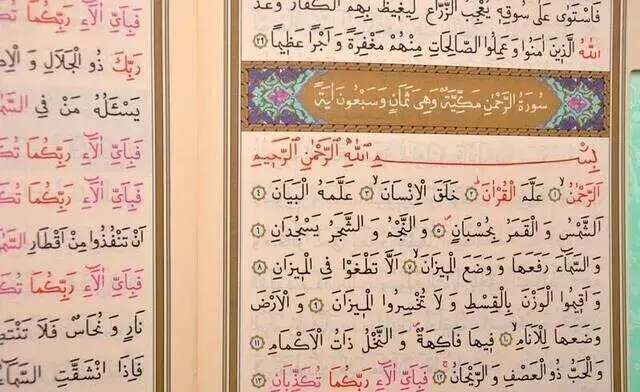 فَاسْتَوٰى عَلٰى سُوقِهٖ يُعْجِبُ الزُّرَّاعَ لِيَغٖيظَ بِهِمُ الْكُفَّارَ وَعَدَ
اللّٰهُ الَّذٖينَ اٰمَنُوا وَعَمِلُوا الصَّالِحَاتِ مِنْهُمْ مَغْفِرَةً وَ اَجْرًا عَظٖيمًا ٢٩
سُورَةُ الرَّحْمٰنِ مَكِّيَّةٌ وَهِىَ ثَمَانٍ وَ سَبْعُونَ اٰيَةً
بِسْمِ اللّٰهِ الرَّحْمٰنِ الرَّحٖيمِ
اَلرَّحْمٰنُ ١ عَلَّمَ الْقُرْاٰنَ ٢ خَلَقَ الْاِنْسَانَ ٣ عَلَّمَهُ الْبَيَانَ ٤
اَلشَّمْسُ وَ الْقَمَرُ بِحُسْبَانٍ ٥ وَ النَّجْمُ وَ الشَّجَرُ يَسْجُدَانِ ٦
وَ السَّمَاءَ رَفَعَهَا وَ وَضَعَ الْمٖيزَانَ ٧ اَلَّا تَطْغَوْا فِى الْمٖيزَانِ ٨
وَ اَقٖيمُوا الْوَزْنَ بِالْقِسْطِ وَ لَا تُخْسِرُوا الْمٖيزَانَ ٩ وَ الْاَرْضَ
وَضَعَهَا لِلْاَنَامِ ١٠ فٖيهَا فَاكِهَةٌ وَ النَّخْلُ ذَاتُ الْاَكْمَامِ ١١
وَ الْحَبُّ ذُو الْعَصْفِ وَ الرَّيْحَانُ ١٢ فَبِاَىِّ اٰلَاءِ رَبِّكُمَا تُكَذِّبَانِ ١٣
فَبِاَىِّ اٰلَاءِ رَبِّكُمَا
رَبِّكَ ذُو الْجَلَالِ وَ
يَسْئَلُهُ مَنْ فِى
فَبِاَىِّ اٰلَاءِ رَبِّكُمَا
فَبِاَىِّ اٰلَاءِ رَبِّكُمَا
اَنْ تَنْفُذُوا مِنْ اَقْطَارِ
فَبِاَىِّ اٰلَاءِ رَبِّكُمَا
نَارٍ وَ نُحَاسٌ فَلَا
فَاِذَا انْشَقَّتِ